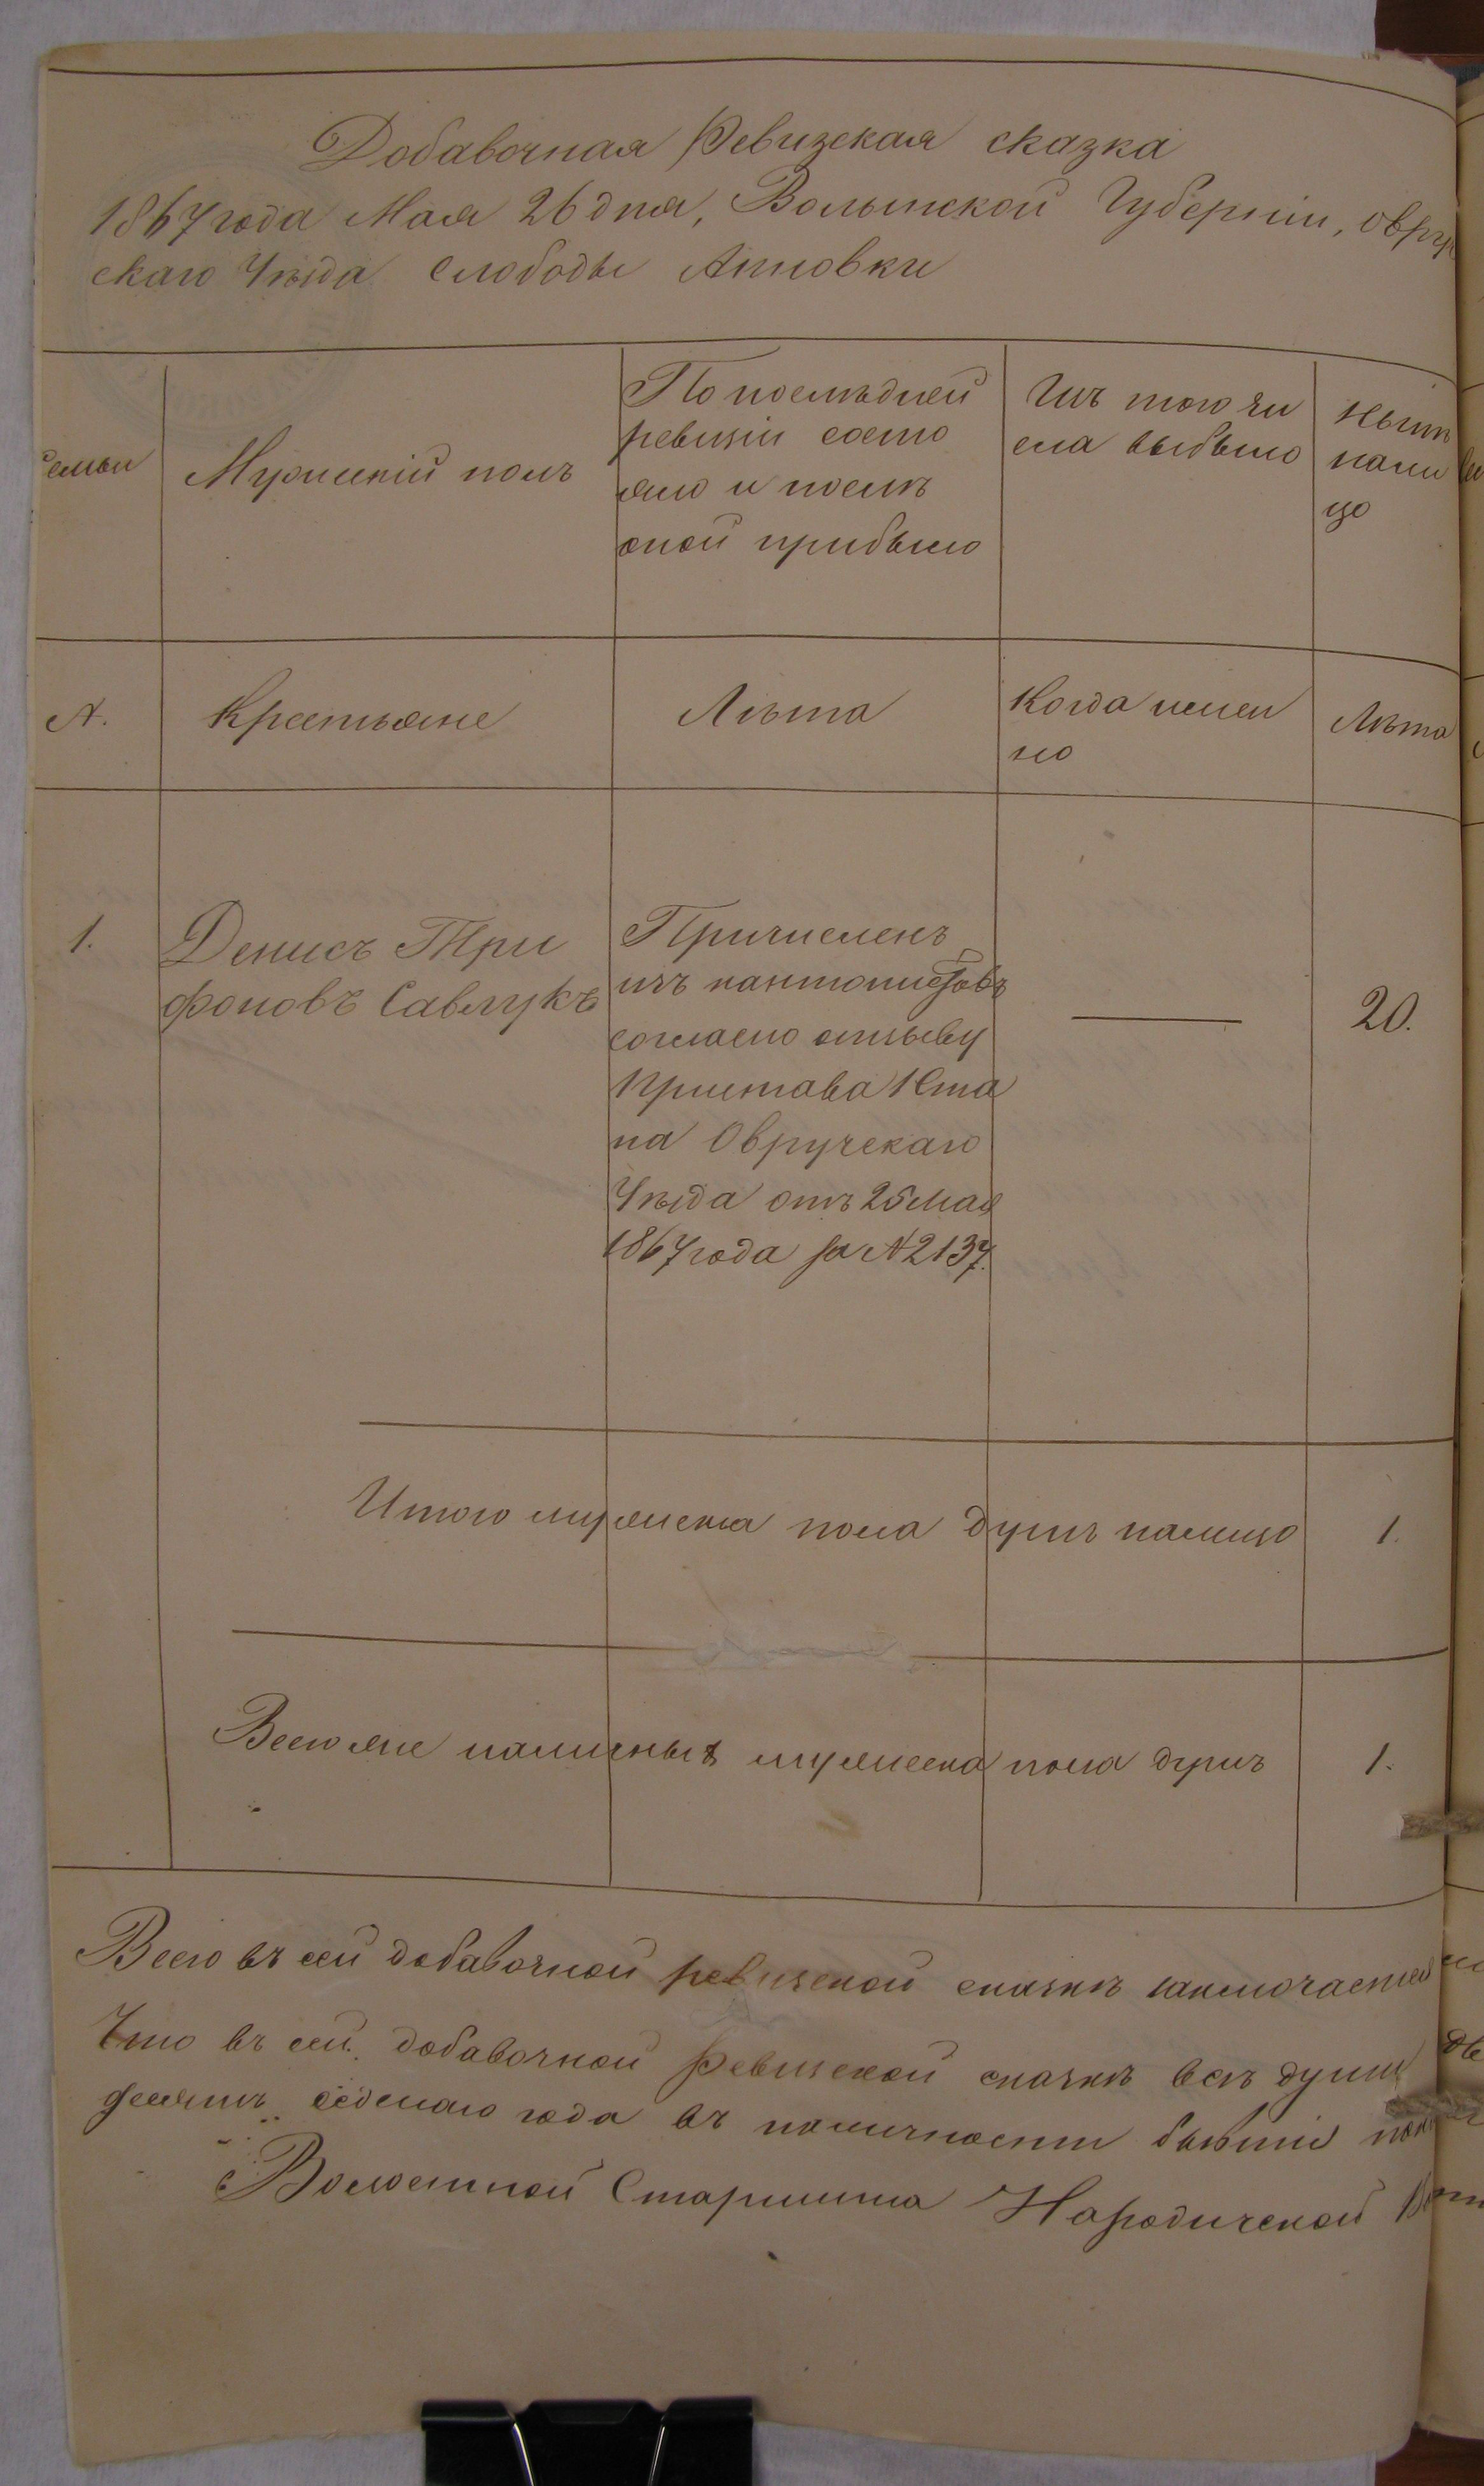 Добавочная Ревизская сказка
1867 года Мая 26 дня, Волынской Губерніи, Овруч
скаго Уѣзда Слободы Анновки
Семьи
Мужескій полъ
По послѣдней
ревизіи состо
яло и послѣ
оной прибыло
Изъ того чи
сла выбыло
Нынѣ
нали
цо
№.
Крестьяне
Лѣта
Когда имен
но
Лѣта
1.
Денисъ Три
фоновъ Савлукъ
Причисленъ
изъ кантонистовъ
согласно отзыву
Пристава 1 Ста
на Овручскаго
Уѣзда отъ 25 Мая
1867 года за №2137.
20.
Итого мужеска пола душъ налицо
1.
Всего же наличныхъ мужеска пола душъ
1.
Всего въ сей добавочной ревизской сказкѣ заключается
Что въ сей добавочной Ревизской сказкѣ всѣ души
десятъ седьмаго года въ наличности бывшіе
Волостной Старшина Народичской